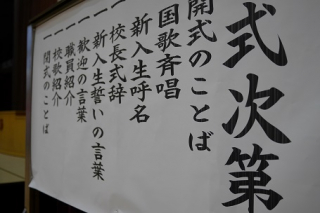 式次第
一 開式のことば
一 国歌斉唱
一 新入生呼名
一 校長式辞
一 新入生誓いの言葉
一 歓迎の言葉
一 職員紹介
一 校歌紹介
一 閉式のことば